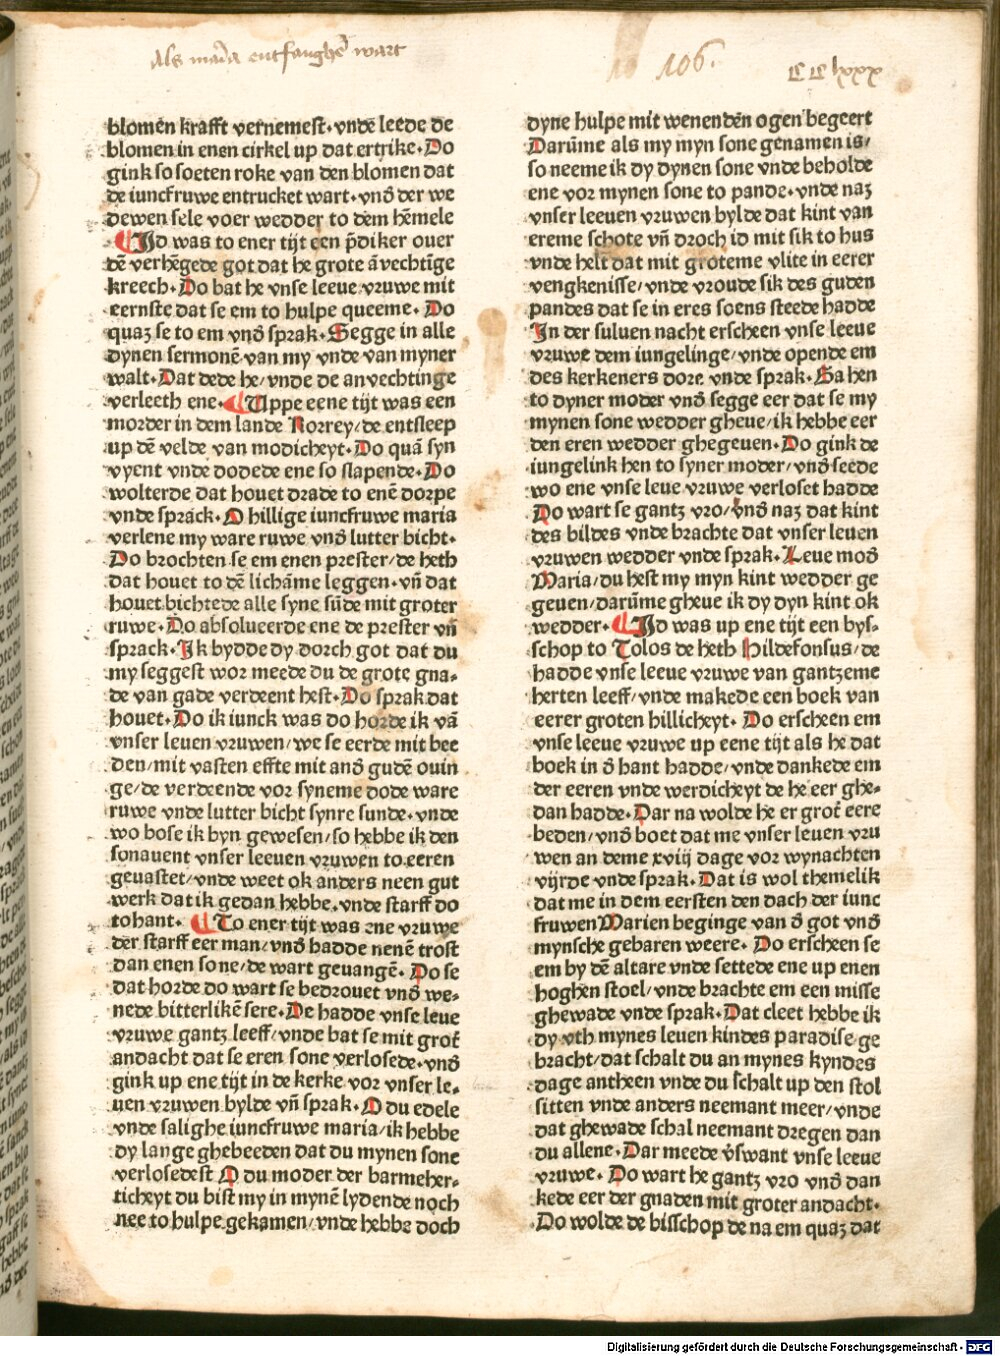 Als maria entfanghē wart
106.
CC lxxx
blomen krafft vernemest. vnde leede de
blomen in enen cirkel up dat ertrike. Do
gink so soeten roke van den blomen dat
de iuncfruwe entrucket wart. vnd̄ der we
dewen sele voer wedder to dem hēmele
¶ Id was to ener tijt een p̄diker ouer
dē verhēgede got dat he grote āvechtīge
kreech. Do bat he vnse leeue vruwe mit
eernste dat se em to hulpe queeme. Do
quaz se to em vnd̄ sprak. Segge in alle
dynen sermonē van my vnde van myner
walt. Dat dede he/ vnde de anvechtinge
verleeth ene. ¶ Uppe eene tijt was een
morder in dem lande Norrey/ de entsleep
up dē velde van modicheyt. Do quā syn
vyent vnde dodede ene so slapende. Do
wolterde dat houet drade to enē dorpe
vnde sprack. O hillige iuncfruwe maria
verlene my ware ruwe vnd̄ lutter bicht.
Do brochten se em enen prester/ de heth
dat houet to dē lichāme leggen. vn̄ dat
houet bichtede alle syne sūde mit groter
ruwe. Do absolueerde ene de prester vn̄
sprack. Ik bydde dy dorch got dat du
my seggest wor meede du de grote gna-
de van gade verdeent hest. Do sprak dat
houet. Do ik iunck was do horde ik vā
vnser leuen vruwen/ we se eerde mit bee
den/ mit vasten effte mit and̄ gudē ouin
ge/ de verdeende vor syneme dode ware
ruwe vnde lutter bicht synre sunde. vnde
wo bose ik byn gewesen/ so hebbe ik den
sonauent vnser leeuen vruwen to eeren
geuastet/ vnde weet ok anders neen gut
werk dat ik gedan hebbe. vnde starff do
tohant. ¶ To ener tijt was ene vruwe
der starff eer man/ vnd̄ hadde nenē trost
dan enen sone/ de wart geuangē. Do se
dat horde do wart se bedrouet vnd̄ we-
nede bitterlikē sere. De hadde vnse leue
vruwe gantz leeff/ vnde bat se mit grot̄
andacht dat se eren sone verlosede. vnd̄
gink up ene tijt in de kerke vor vnser le-
uen vruwen bylde vn̄ sprak. O du edele
vnde salighe iuncfruwe maria/ ik hebbe
dy lange ghebeeden dat du mynen sone
verlosedest O du moder der barmeher-
ticheyt du bist my in mynē lydende noch
nee to hulpe gekamen/ vnde hebbe doch
dyne hulpe mit wenenden ogen begeert
Darūme als my myn sone genamen is/
so neeme ik dy dynen sone vnde beholde
ene vor mynen sone to pande. vnde naz
vnser leeuen vruwen bylde dat kint van
ereme schote vn̄ droch id mit sik to hus
vnde helt dat mit groteme vlite in eerer
vengkenisse/ vnde vroude sik des guden
pandes dat se in eres soens steede hadde
In der suluen nacht erscheen vnse leeue
vruwe dem iungelinge/ vnde opende em
des kerkeners dore. vnde sprak. Ga hen
to dyner moder vnd̄ segge eer dat se my
mynen sone wedder gheue/ ik hebbe eer
den eren wedder ghegeuen. Do gink de
iungelink hen to syner moder/ vnd̄ seede
wo ene vnse leue vruwe verloset hadde
Do wart se gantz vro/ vnd̄ naz dat kint
des bildes vnde brachte dat vnser leuen
vruwen wedder vnde sprak. Leue mod̄
Maria/ du hest my myn kint wedder ge
geuen/ darūme gheue ik dy dyn kint ok
wedder. ¶ Id was up ene tijt een bys-
schop to Tolos de heth Hildefonsus/ de
hadde vnse leeue vruwe van gantzeme
herten leeff/ vnde makede een boek van
eerer groten hillicheyt. Do erscheen em
vnse leeue vruwe up eene tijt als he dat
boek in d̄ hant hadde/ vnde dankede em
der eeren vnde werdicheyt de he eer ghe-
dan hadde. Dar na wolde he er grot̄ eere
beden/ vnd̄ boet dat me vnser leuen vru
wen an deme xviij dage vor wynachten
vijrde vnde sprak. Dat is wol themelik
dat me in dem eersten den dach der iunc
fruwen Marien beginge van d̄ got vnd̄
mynsche gebaren weere. Do erscheen se
em by dē altare vnde settede ene up enen
hoghen stoel/ vnde brachte em een misse
ghewade vnde sprak. Dat cleet hebbe ik
dy vth mynes leuen kindes paradise ge
bracht/ dat schalt du an mynes kyndes
dage antheen vnde du schalt up den stol
sitten vnde anders neemant meer/ vnde
dat ghewade schal neemant dregen dan
du allene. Dar meede v̄swant vnse leeue
vruwe. Do wart he gantz vro vnd̄ dan
kede eer der gnaden mit groter andacht.
Do wolde de bisschop de na em quaz dat
Digitalisierung gefördert durch die Deutsche Forschungsgemeinschaft - DFG